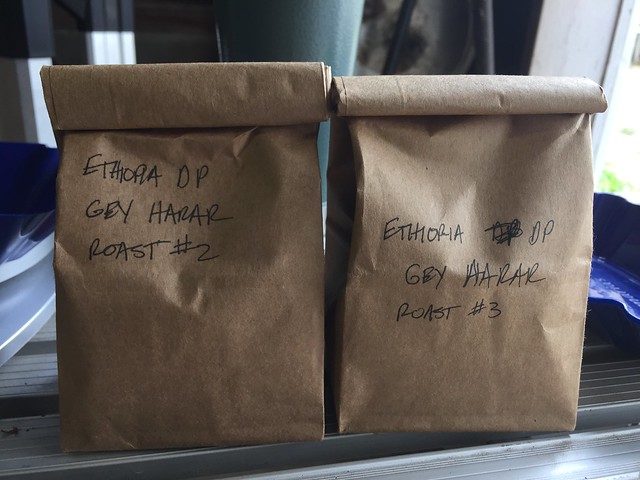 ETHIOPIA DP
GEY HARAR
ROAST #2
ETHIORIA DP
GEY HARAR
ROAST #3